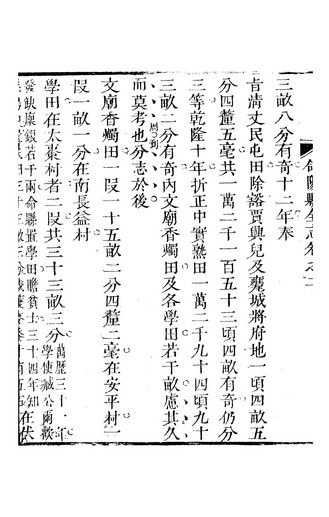 郃陽縣全志卷之二
三畝八分有奇十二年奉
旨清丈民屯田除豁賈興兒及甕城將府地一頃四畝五
分四釐五毫共一萬二千一百五十三頃四畝有奇仍分
三等乾隆十年折正中實熟田一萬二千九十四頃九十
三畝二分有奇內文廟香燭田及各學田若干畝慮其久
周到
而莫考也分志於後
文廟香燭田一段一十五畝二分四釐二毫在安平村一
段一畝一分在南長益村
學田在太棗村者二段共三十三畝三分
萬歷三十一年
學使誠公兩檄
發缺廩銀若干兩命縣置學田贍貧士三十四年知